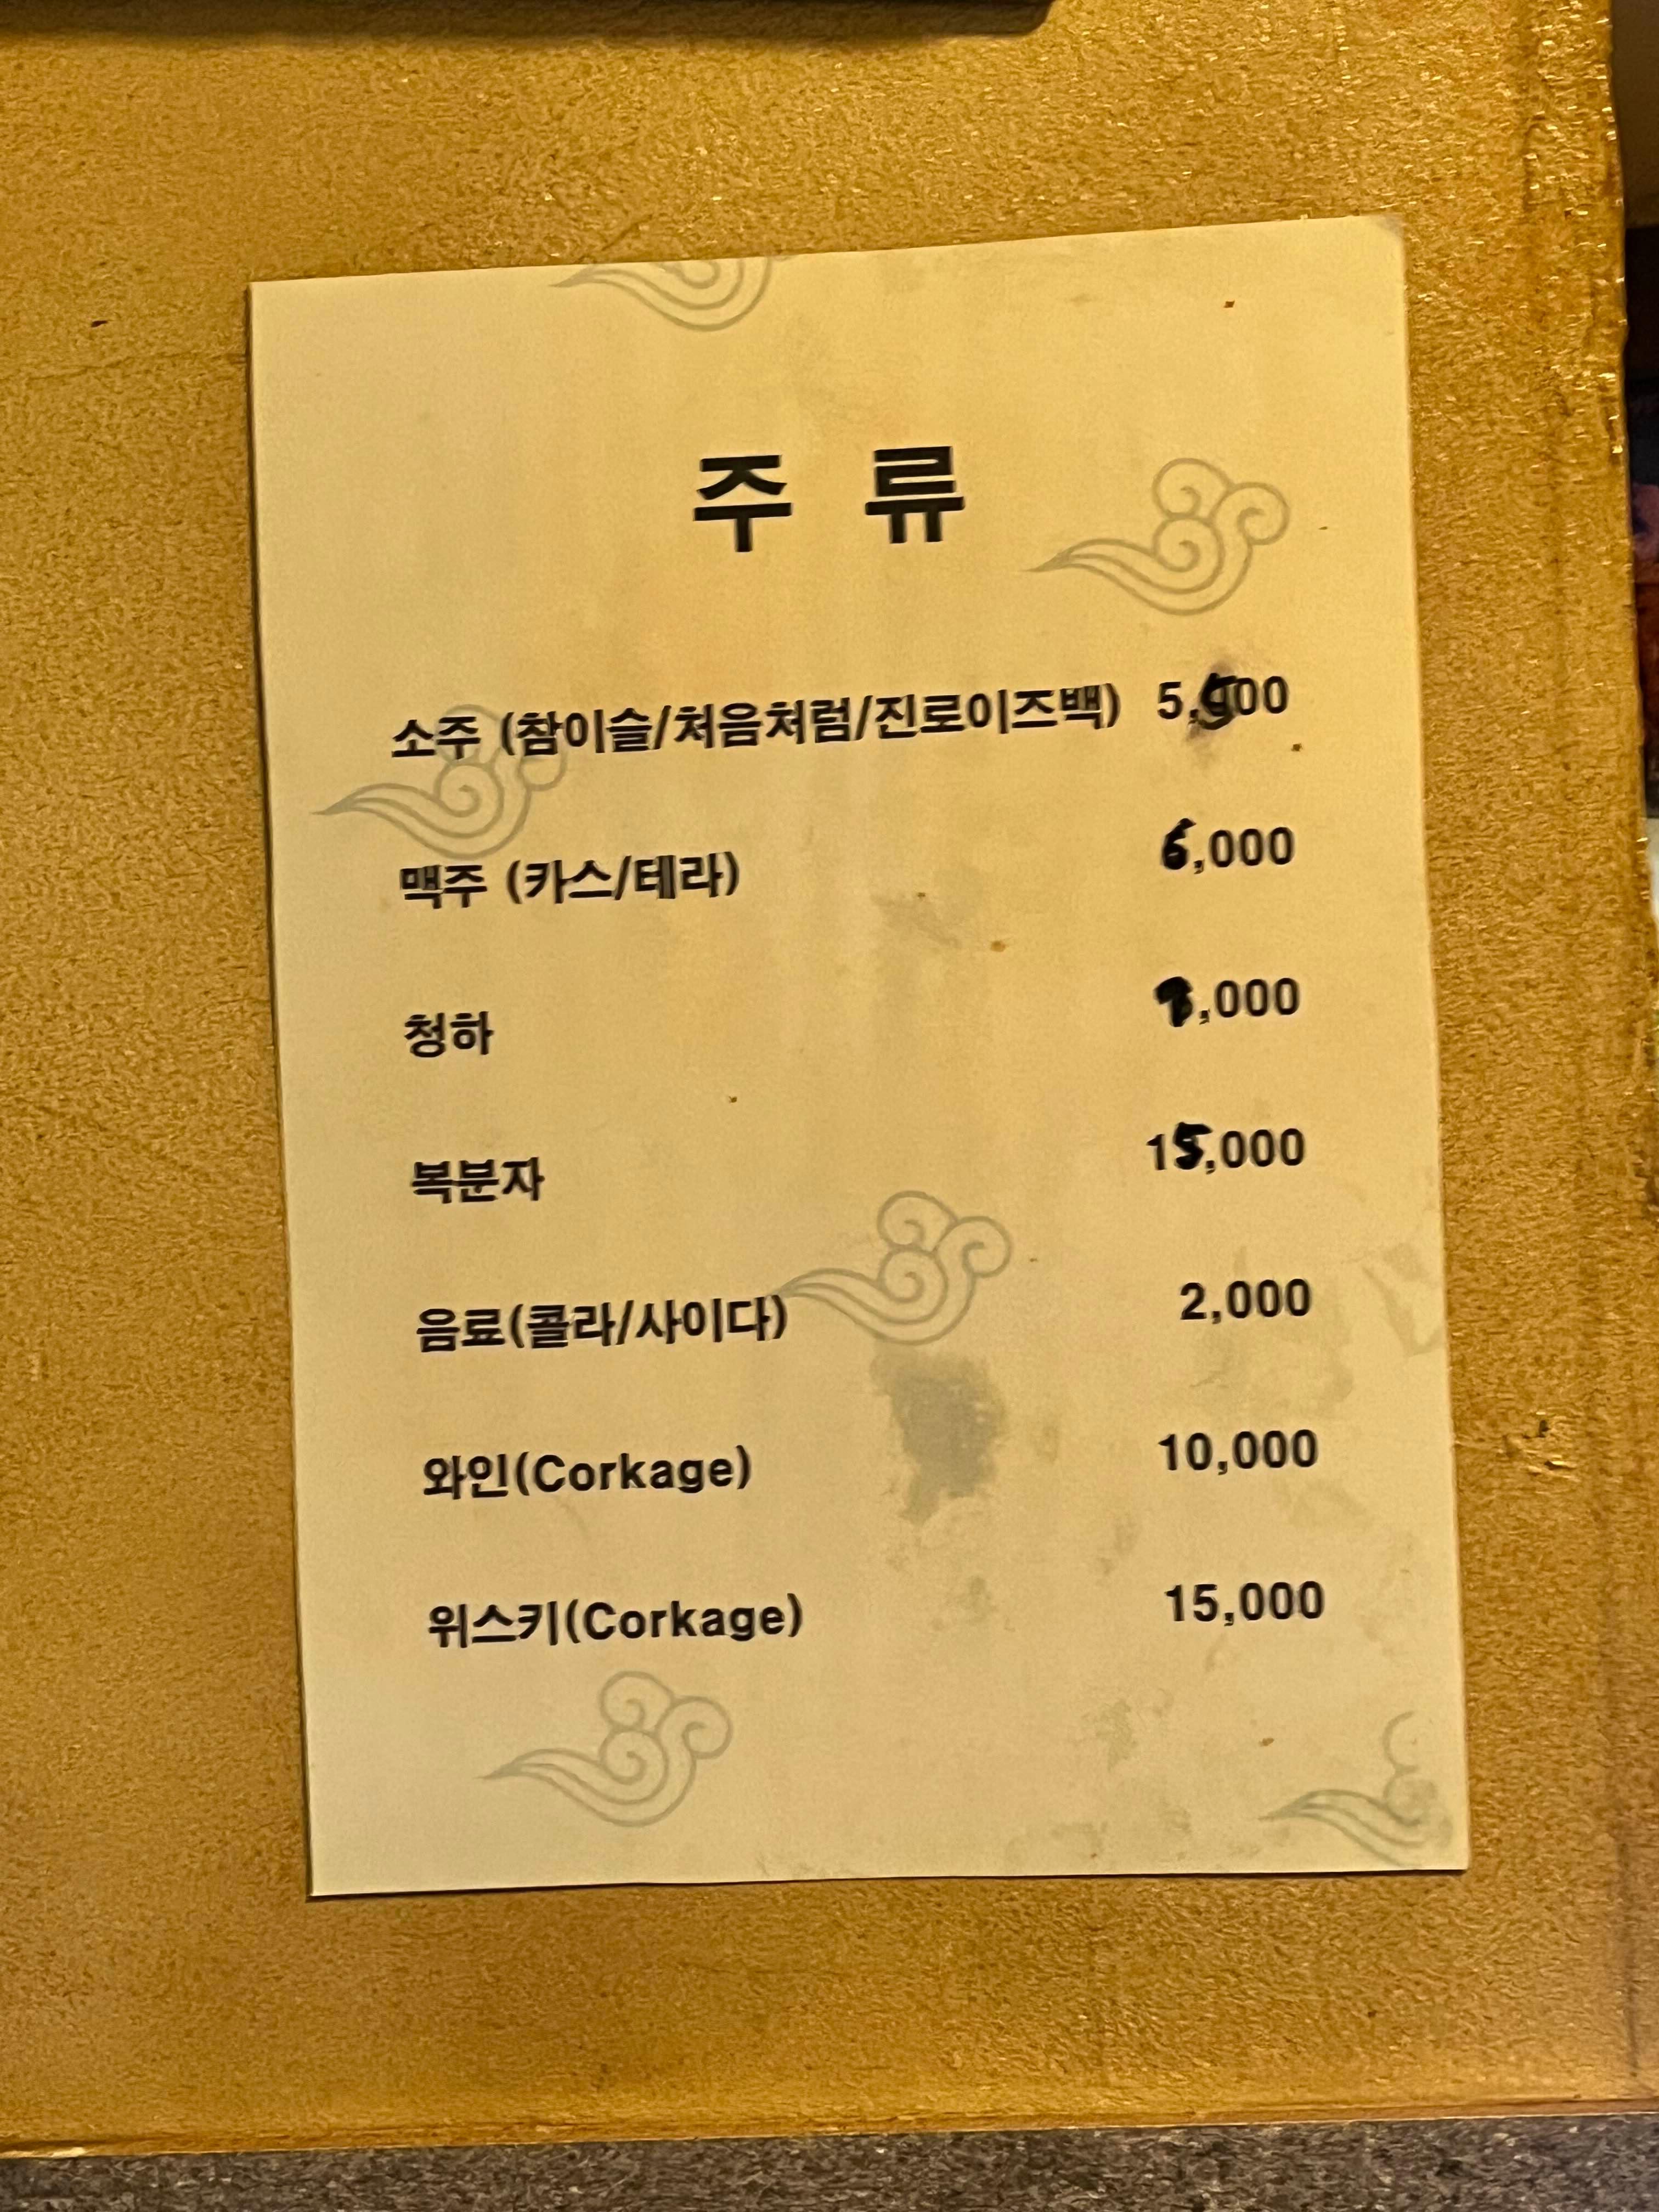 주 류
소주 (참이슬/처음처럼/진로이즈백) 5,500
맥주 (카스/테라) 6,000
청하
복분자 15,000
음료(콜라/사이다) 2,000
와인(Corkage) 10,000
위스키(Corkage) 15,000